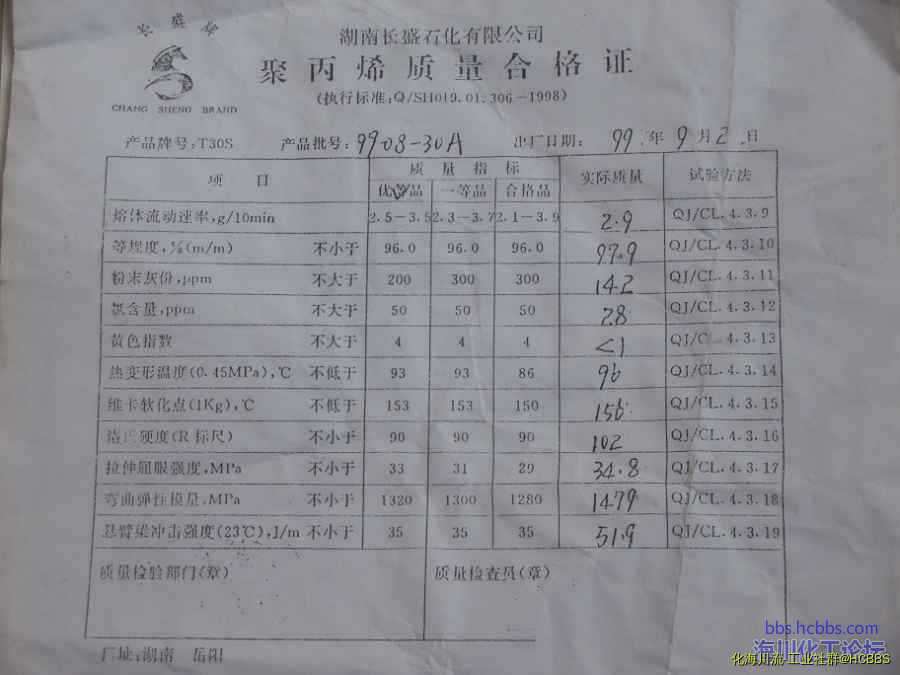 长盛牌
CHANG SHENG BRAND
湖南长盛石化有限公司
聚丙烯质量合格证
(执行标准:Q/SH019.01.306-1998)
产品牌号:T30S 产品批号:9908-30A 出厂日期: 99.年9月2.日
项 目 质 量 指 标 实际质量 试验方法
优等品 一等品 合格品
熔体流动速率,g/10min 2.5-3.5 2.3-3.7 2.1-3.9 2.9 QJ/CL.4.3.9
等规度,%(m/m) 不小于 96.0 96.0 96.0 97.9 QJ/CL.4.3.10
粉末灰份,ppm 不大于 200 300 300 142 QJ/CL.4.3.11
氯含量,ppm 不大于 50 50 50 28 QJ/CL.4.3.12
黄色指数 不大于 4 4 4 <1 QJ/C 4.3.13
热变形温度(0.45MPa),℃ 不低于 93 93 86 96 QJ/CL.4.3.14
维卡软化点(1Kg),℃ 不低于 153 153 150 156 QJ/CL.4.3.15
洛氏硬度(R标尺) 不小于 90 90 90 102 QJ/CL.4.3.16
拉伸屈服强度,MPa 不小于 33 31 29 34.8 QJ/CL.4.3.17
弯曲弹性模量,MPa 不小于 1320 1300 1280 1479 QJ/CL.4.3.18
悬臂梁冲击强度(23℃),J/m 不小于 35 35 35 51.9 QJ/CL.4.3.19
质量检验部门(章) 质量检查员(章)
厂址:湖南 岳阳
bbs.hcbbs.com
海川化工论坛
化海川流-工业社群@HCBBS